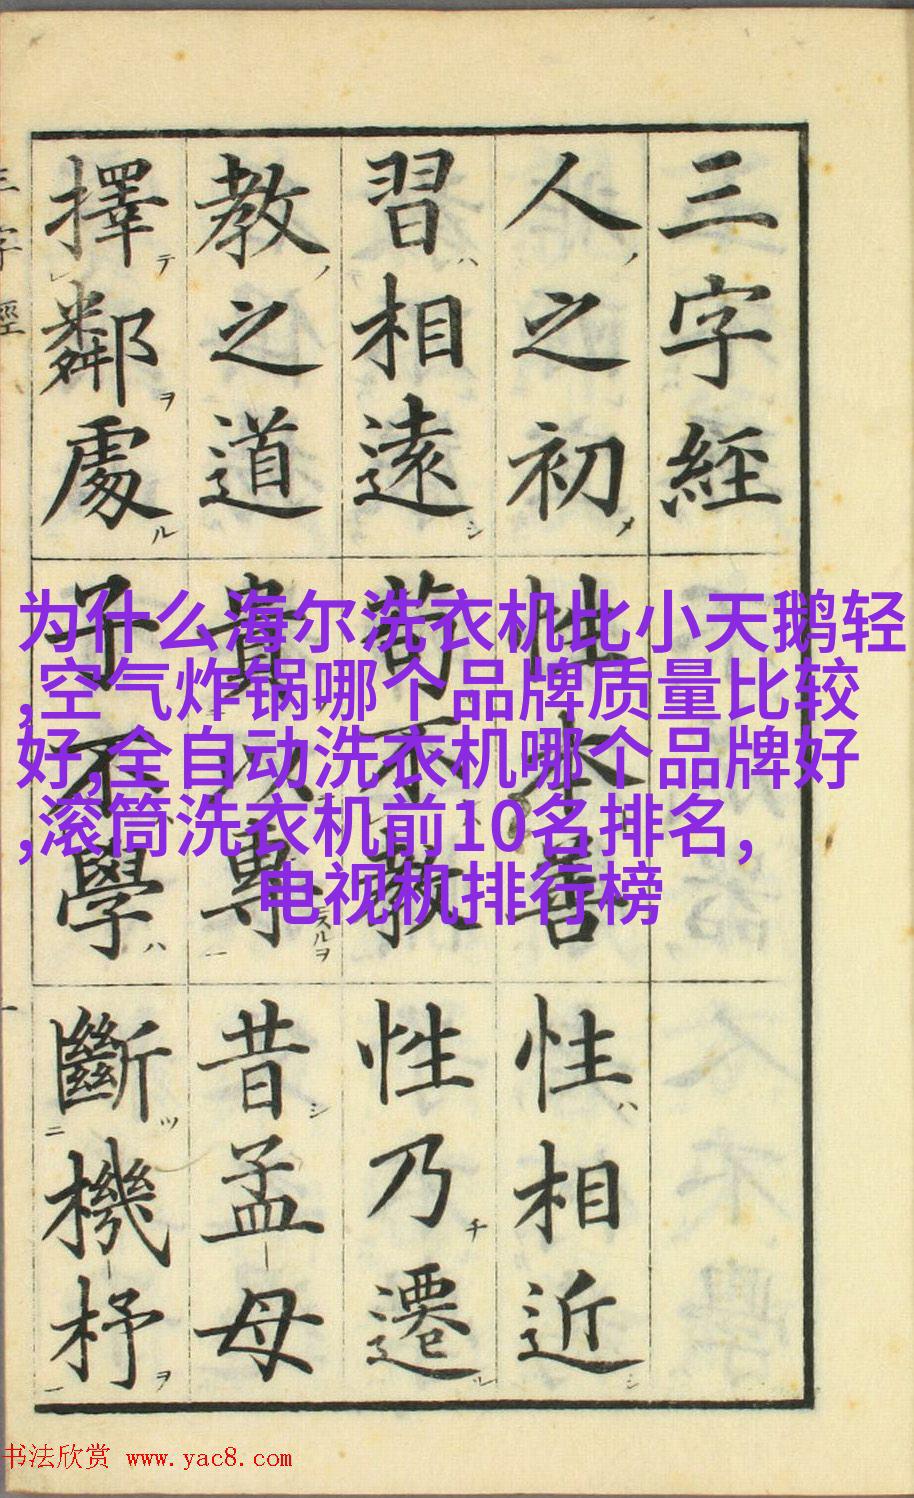 三字經
人之初 性本善 性相近
習相遠 苟不教 性乃遷
教之道 貴以專 昔孟母
擇鄰處 子不學 斷機杼
三字經 一
为什么海尔洗衣机比小天鹅轻
,空气炸锅哪个品牌质量比较
好,全自动洗衣机哪个品牌好
,滚筒洗衣机前10名排名,
电视机排行榜
书法欣赏 www.yac8.com